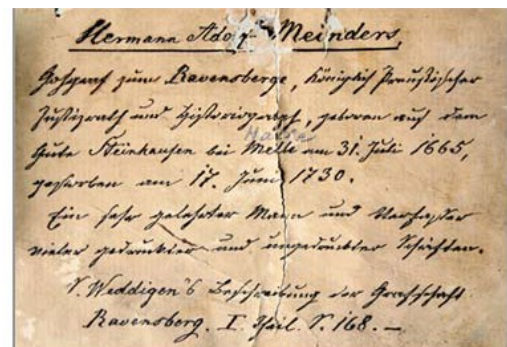 Hermann Adolf Meinders,
Gohgraf zum Ravensberge, Königlich Preußischer
Justizrath und Historiograph, geboren auf dem
Halle
Gute Steinhausen bei Melle am 31. Juli 1665,
gestorben am 17. Juni 1730.
Ein sehr gelehrter Mann und Verfasser
vieler gedruckter und ungedruckter Schriften.
S. Weddigen's Beschreibung der Grafschaft
Ravensberg. I. Theil. S. 168. —